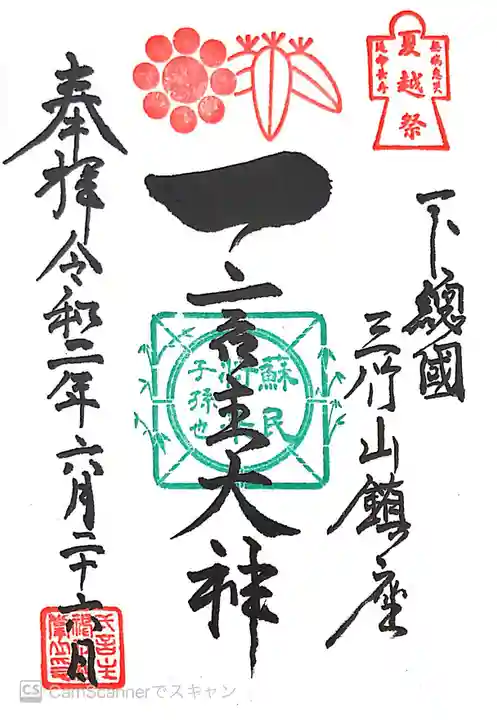 無病息災
夏越祭
延命長寿
下總國
三竹山鎮座
一言主大神
蘇民
将来
子孫也
奉拝令和二年六月二十六日
CS CamScannerでスキャン